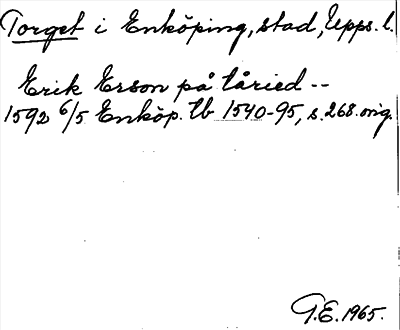 Torget i Enköping, stad, Upps. l.
Erik Erson på tåried --
1592 6/5 Enköp. tb 1540-95, s. 268. orig.
T.E. 1965.